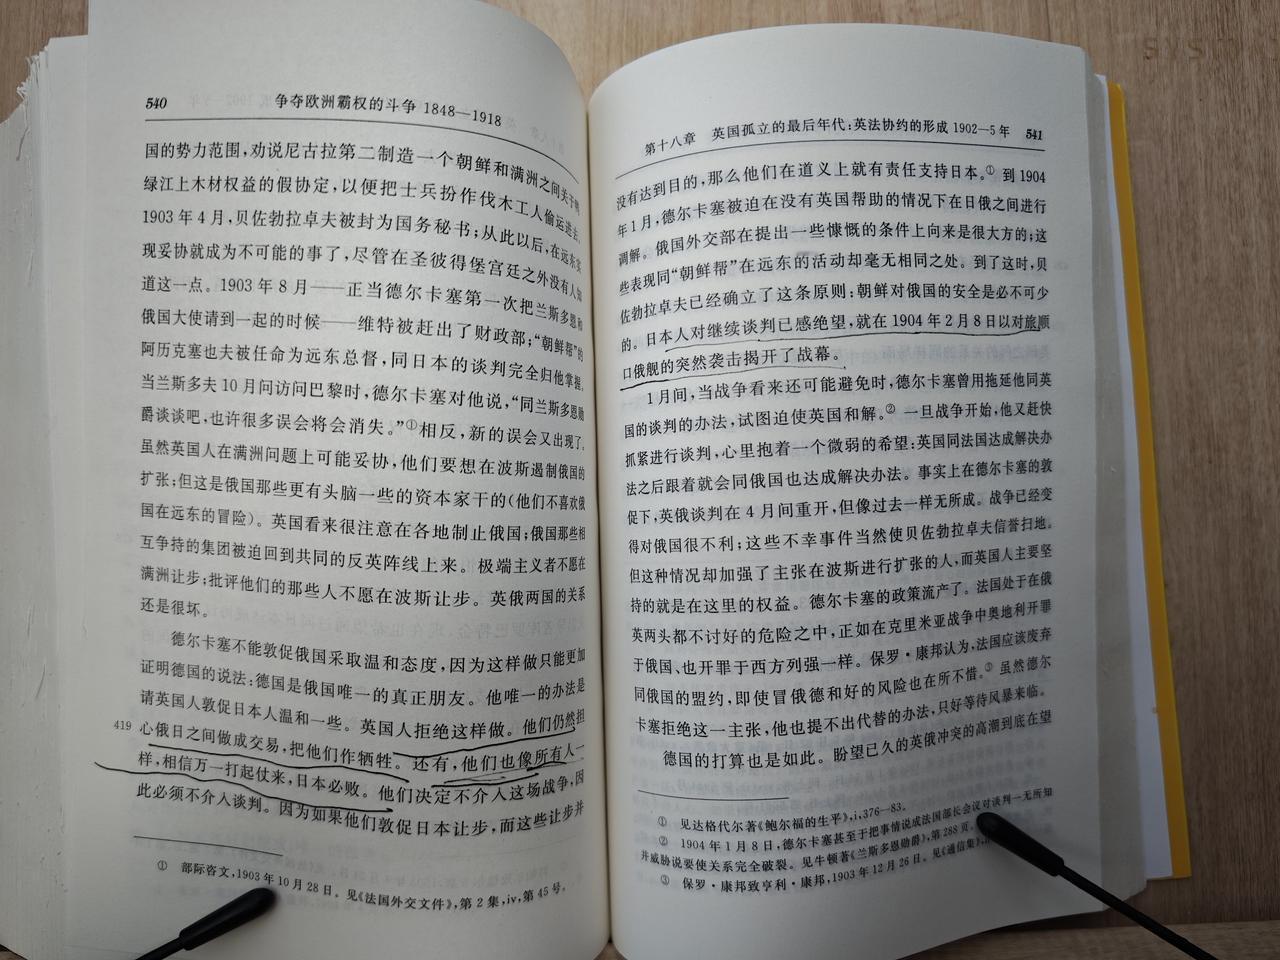 540 争夺欧洲霸权的斗争 1848—1918
国的势力范围，劝说尼古拉第二制造一个朝鲜和满洲之间关于鸭
绿江上木材权益的假协定，以便把士兵扮作伐木工人偷运进去。
1903年4月，贝佐勃拉卓夫被封为国务秘书；从此以后，在远东实
现妥协就成为不可能的事了，尽管在圣彼得堡宫廷之外没有人知
道这一点。1903年8月——正当德尔卡塞第一次把兰斯多恩和
俄国大使请到一起的时候——维特被赶出了财政部；“朝鲜帮”的
阿历克塞也夫被任命为远东总督，同日本的谈判完全归他掌握。
当兰斯多夫10月间访问巴黎时，德尔卡塞对他说，“同兰斯多恩勋
爵谈谈吧，也许很多误会将会消失。”①相反，新的误会又出现了。
虽然英国人在满洲问题上可能妥协，他们要想在波斯遏制俄国的
扩张；但这是俄国那些更有头脑一些的资本家干的（他们不喜欢俄
国在远东的冒险）。英国看来很注意在各地制止俄国；俄国那些相
互争持的集团被迫回到共同的反英阵线上来。极端主义者不愿在
满洲让步；批评他们的那些人不愿在波斯让步。英俄两国的关系
还是很坏。
德尔卡塞不能敦促俄国采取温和态度，因为这样做只能更加
证明德国的说法：德国是俄国唯一的真正朋友。他唯一的办法是
请英国人敦促日本人温和一些。英国人拒绝这样做。他们仍然担
419 心俄日之间做成交易，把他们作牺牲。还有，他们也像所有人一
样，相信万一打起仗来，日本必败。他们决定不介入这场战争，因
此必须不介入谈判。因为如果他们敦促日本让步，而这些让步并
① 部际咨文，1903年10月28日。见《法国外交文件》，第2集，iv，第45号。
第十八章 英国孤立的最后年代：英法协约的形成 1902—5年 541
没有达到目的，那么他们在道义上就有责任支持日本。①到1904
年1月，德尔卡塞被迫在没有英国帮助的情况下在日俄之间进行
调解。俄国外交部在提出一些慷慨的条件上向来是很大方的；这
些表现同“朝鲜帮”在远东的活动却毫无相同之处。到了这时，贝
佐勃拉卓夫已经确立了这条原则：朝鲜对俄国的安全是必不可少
的。日本人对继续谈判已感绝望，就在1904年2月8日以对旅顺
口俄舰的突然袭击揭开了战幕。
1月间，当战争看来还可能避免时，德尔卡塞曾用拖延他同英
国的谈判的办法，试图迫使英国和解。②一旦战争开始，他又赶快
抓紧进行谈判，心里抱着一个微弱的希望：英国同法国达成解决办
法之后跟着就会同俄国也达成解决办法。事实上在德尔卡塞的敦
促下，英俄谈判在4月间重开，但像过去一样无所成。战争已经变
得对俄国很不利；这些不幸事件当然使贝佐勃拉卓夫信誉扫地。
但这种情况却加强了主张在波斯进行扩张的人，而英国人主要坚
持的就是在这里的权益。德尔卡塞的政策流产了。法国处于在俄
英两头都不讨好的危险之中，正如在克里米亚战争中奥地利开罪
于俄国、也开罪于西方列强一样。保罗·康邦认为，法国应该废弃
同俄国的盟约，即使冒俄德和好的风险也在所不惜。③虽然德尔
卡塞拒绝这一主张，他也提不出代替的办法，只好等待风暴来临。
德国的打算也是如此。盼望已久的英俄冲突的高潮到底在望
① 见达格代尔著《鲍尔福的生平》，i，376—83。
② 1904年1月8日，德尔卡塞甚至于把事情说成法国部长会议对谈判一无所知
并威胁说要使关系完全破裂。见牛顿著《兰斯多恩勋爵》，第288页。
③ 保罗·康邦致亨利·康邦，1903年12月26日。见《通信集》，